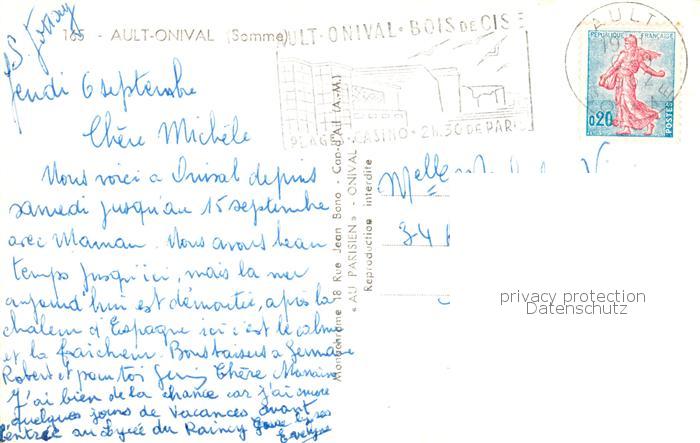 165 - AULT-ONIVAL (Somme)
AULT-ONIVAL - BOIS DE CISE
PLAGES - CASINO - 2h.30 DE PARIS
AULT
SOMME
REPUBLIQUE FRANÇAISE
0,20
POSTES
Jeudi 6 septembre
Chère Michèle
Nous voici a Onival depuis
samedi jusqu'au 15 septembre
avec Maman. Nous avons beau
temps jusqu'ici, mais la mer
aujourd'hui est démontée, après la
chaleur d'Espagne ici c'est le calme
et la fraicheur. Bons baisers a Germaine
Robert et pour toi Chère
J'ai bien de la chance car j'ai encore
quelques jours de vacances avant
l'entrée au Lycée du Raincy
Monochrome 18 Rue Jean Bono - Cap-d'Ail (A.-M.)
« AU PARISIEN » - ONIVAL
Reproduction interdite
Melle
34
privacy protection
Datenschutz